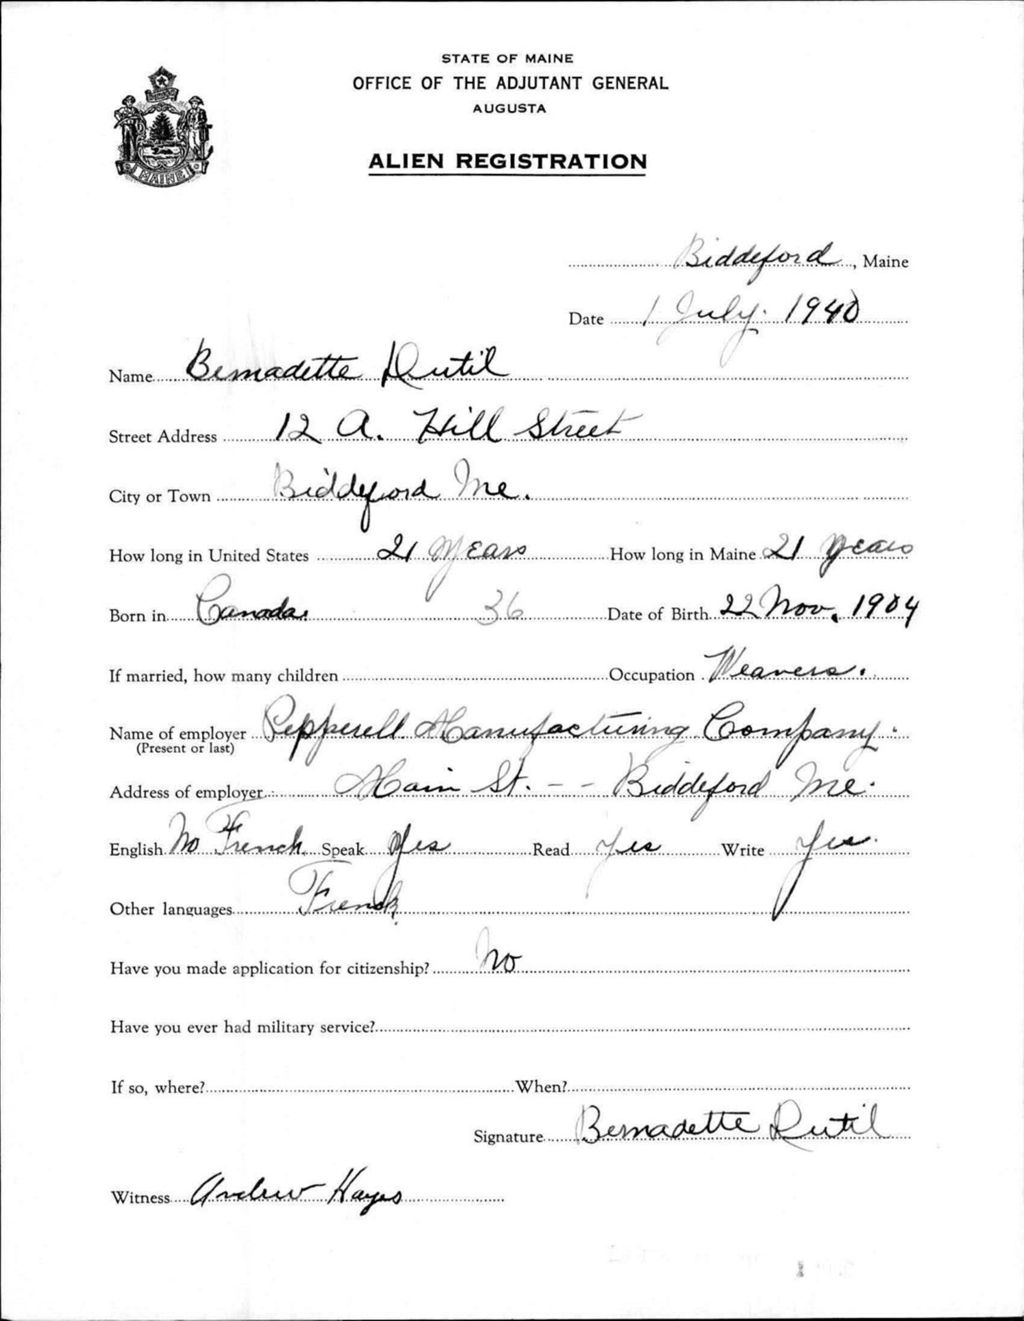 STATE OF MAINE
OFFICE OF THE ADJUTANT GENERAL
AUGUSTA
ALIEN REGISTRATION
MAINE
Biddeford, Maine
Date 1 July. 1940
Name Bernadette Dutil
Street Address 12 A. Hill Street
City or Town Biddeford Me.
How long in United States 21 Years How long in Maine 21 years
Born in Canada. 36 Date of Birth 22 Nov. 1904
If married, how many children Occupation Weavers.
Name of employer Pepperell Manufacturing Company.
(Present or last)
Address of employer Main St. - - Biddeford Me.
English No French Speak Yes Read Yes Write Yes.
Other languages French
Have you made application for citizenship? No
Have you ever had military service?
If so, where? When?
Signature Bernadette Dutil
Witness Andrew Hayes